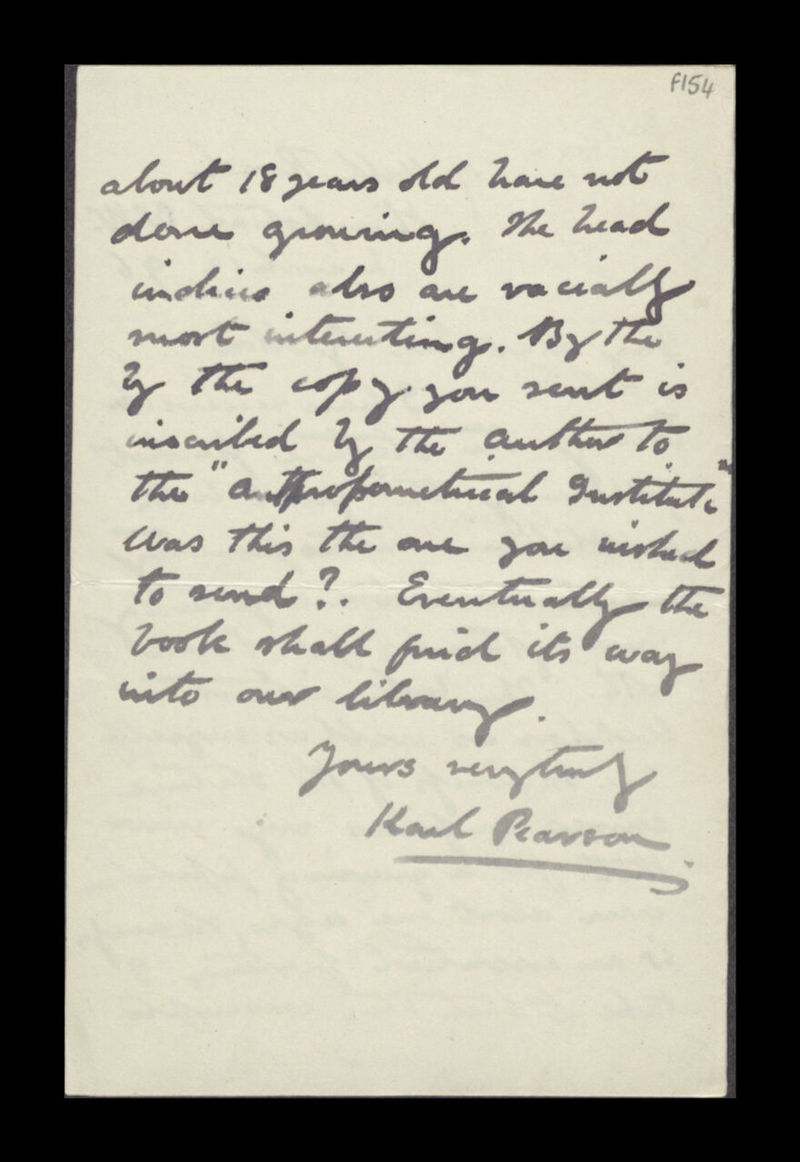 f154
about 18 years old have not
done growing. The head
indices also are racially
most interesting. By the
by the copy you sent is
inscribed by the author to
the "Anthropometrical Institute"
Was this the one you wished
to send?. Eventually the
book shall find its way
into our library.
Yours very truly
Karl Pearson